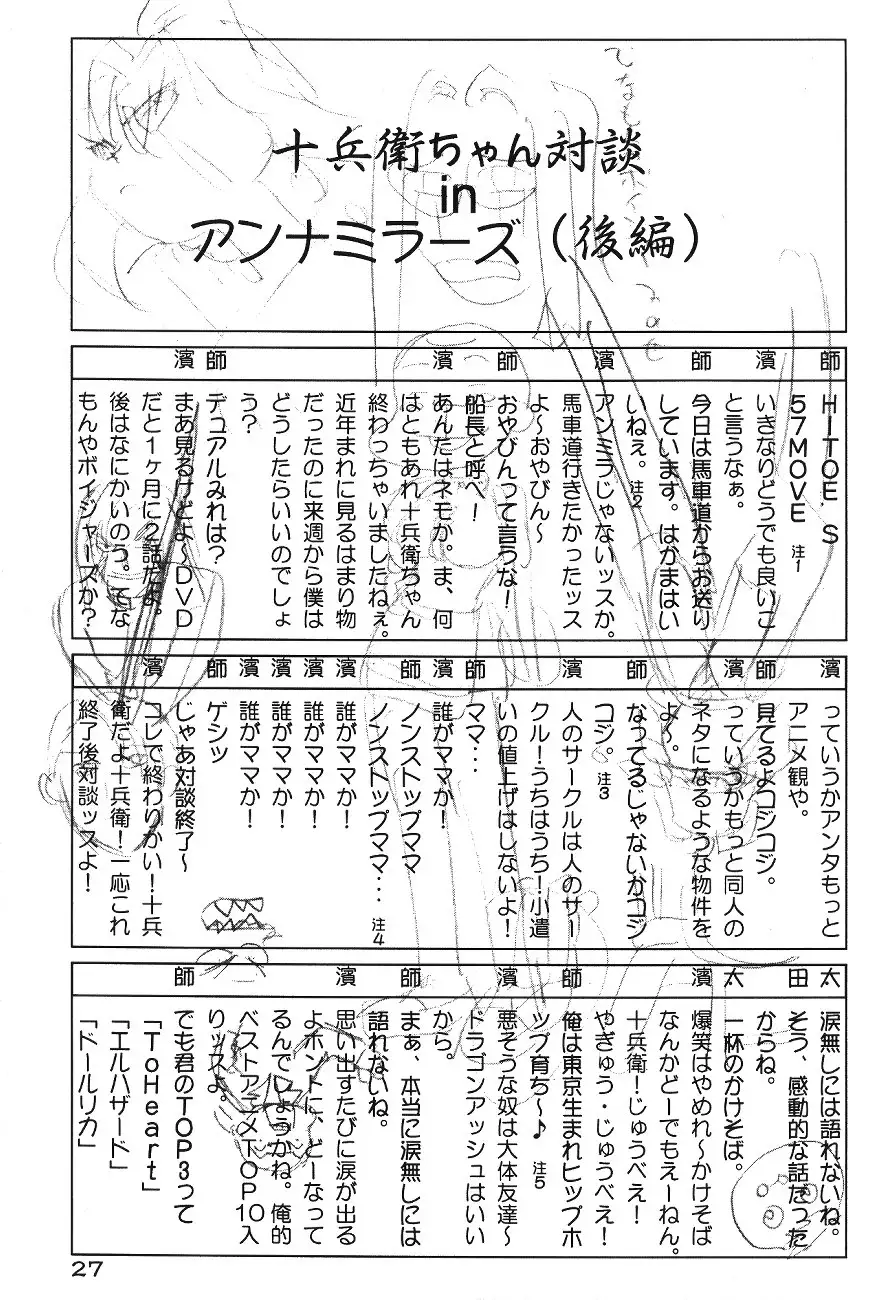 十兵衛ちゃん対談
in
アンナミラーズ（後編）
師
HITOE,S
57MOVE 注1
濱
いきなりどうでも良いこ
と言うなぁ。
師
今日は馬車道からお送り
しています。はかまはい
いねぇ。注2
濱
アンミラじゃないッスか。
馬車道行きたかったッス
よ～おやびん～
師
おやびんって言うな！
船長と呼べ！
濱
あんたはネモか。ま、何
はともあれ十兵衛ちゃん
終わっちゃいましたねぇ。
近年まれに見るはまり物
だったのに来週から僕は
どうしたらいいのでしょ
う？
師
デュアルみれは？
濱
まあ見るけどよ～DVD
だと1ヶ月に2話だよ。
後はなにかいのう。てな
もんやボイジャーズか？
濱
っていうかアンタもっと
アニメ観や。
師
見てるよコジコジ。
太
っていうかもっと同人の
ネタになるような物件を
よ～。
師
なってるじゃないかコジ
コジ。注3
濱
人のサークルは人のサー
クル！うちはうち！小遣
いの値上げはしないよ！
師
ママ…
濱
誰がママか！
師
ノンストップママ
師
ノンストップママ… 注4
濱
誰がママか！
濱
誰がママか！
濱
誰がママか！
濱
誰がママか！
師
ゲシッ
じゃあ対談終了～
濱
コレで終わりかい！十兵
衛だよ十兵衛！一応これ
終了後対談ッスよ！
太
涙無しには語れないね。
田
そう、感動的な話だった
からね。
太
一杯のかけそば。
濱
爆笑はやめれ～かけそば
なんかどーでもえーねん。
十兵衛！じゅうべえ！
やぎゅう・じゅうべえ！
師
俺は東京生まれヒップホ
ップ育ち～♪ 注5
濱
悪そうな奴は大体友達～
ドラゴンアッシュはいい
から。
師
まぁ、本当に涙無しには
語れないね。
濱
思い出すたびに涙が出る
よホントに、どーなって
るんでしょうかね。俺的
ベストアニメTOP10入
りッスよ。
師
でも君のTOP3って
「ToHeart」
「エルハザード」
「ドールリカ」
27